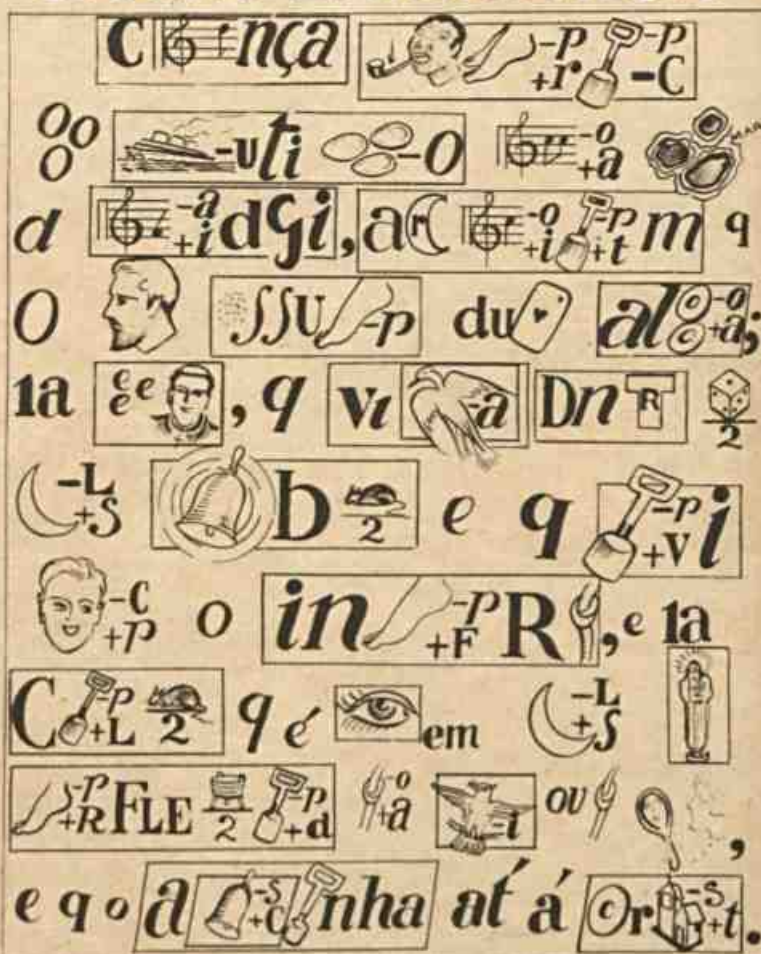 C nça -p +r -p -C
o o o -u ti -o -o +a MAR
d -a +i dgi, a r -o +i -p +t m q
O SSU -p du al -o +a;
1a e e e, q vi -a Dn R 2
-L +S b 2 e q -p +v i
-C +p o in -p +F R, e 1a
C -p +L 2 q é em -L +S
-p +R FLE 2 -p +d -o +a -i OU ,
e q o a -s +c nha at' á r -s +t.